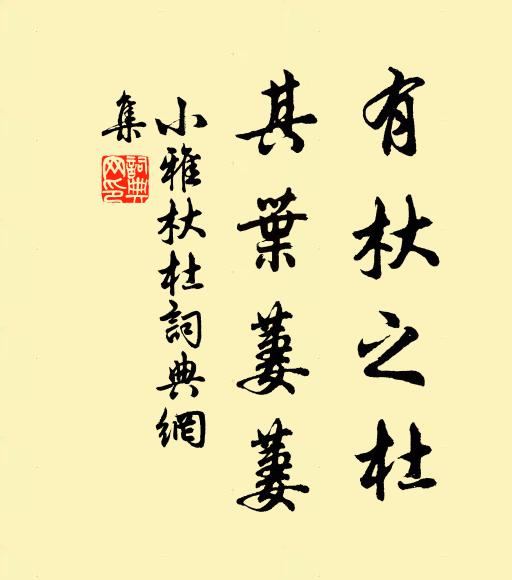 有杕之杜
其葉萋萋
小雅杕杜詞典網
集
詞典
网印